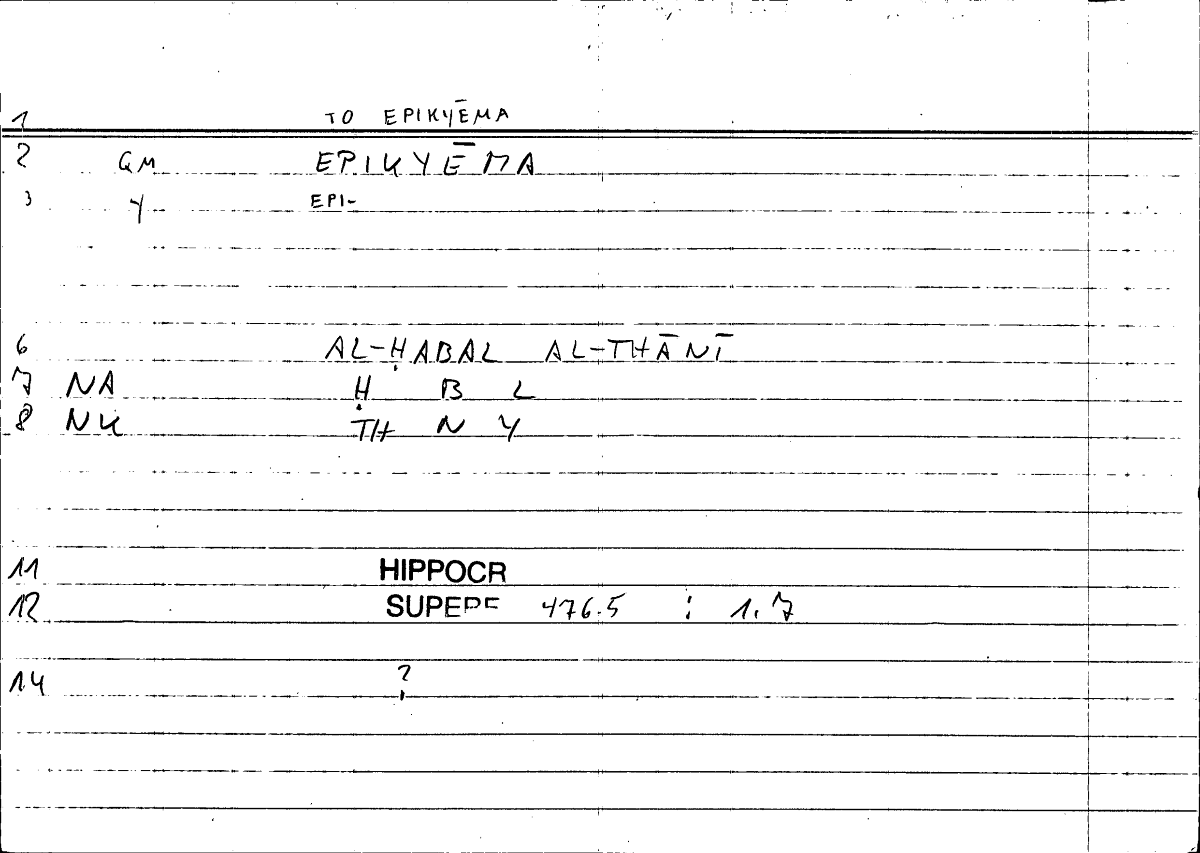 1 TO EPIKYĒMA
2 GM EPIKYĒMA
3 Y EPI-
6 AL-ḤABAL AL-THĀNĪ
7 NA Ḥ B L
8 NK TH N Y
11 HIPPOCR
12 SUPERF 476.5 : 1.7
14 ?